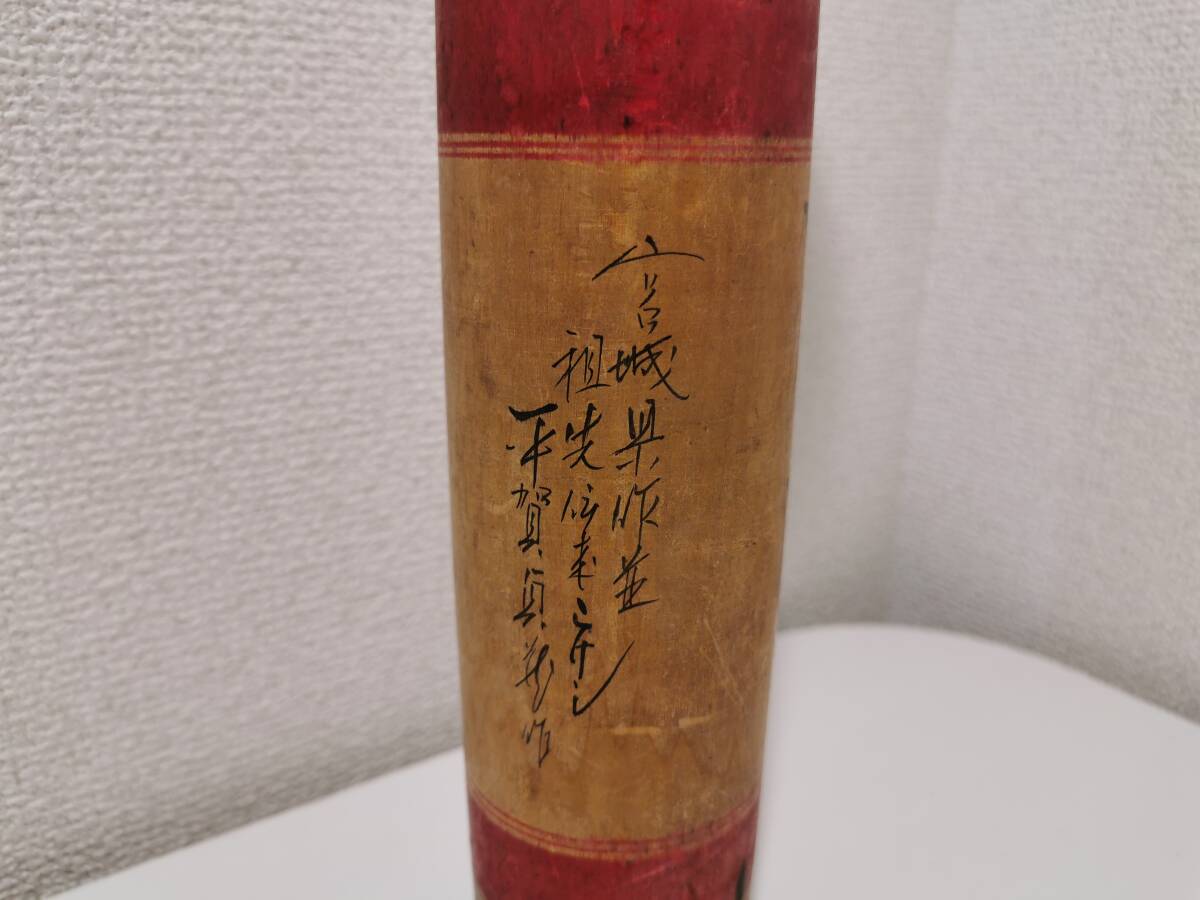 宮城県作並
祖先伝来こけし
平賀貞蔵作